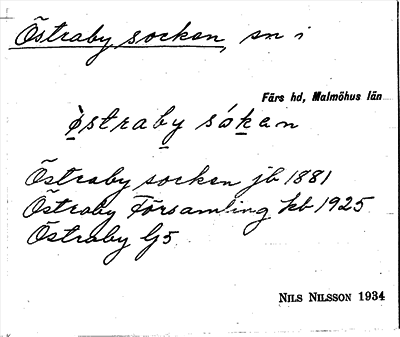 Östraby socken, sn i
Färs hd, Malmöhus län
östraby sókan
Östraby socken jb 1881
Östraby Församling kb 1925
Östraby G5
NILS NILSSON 1934